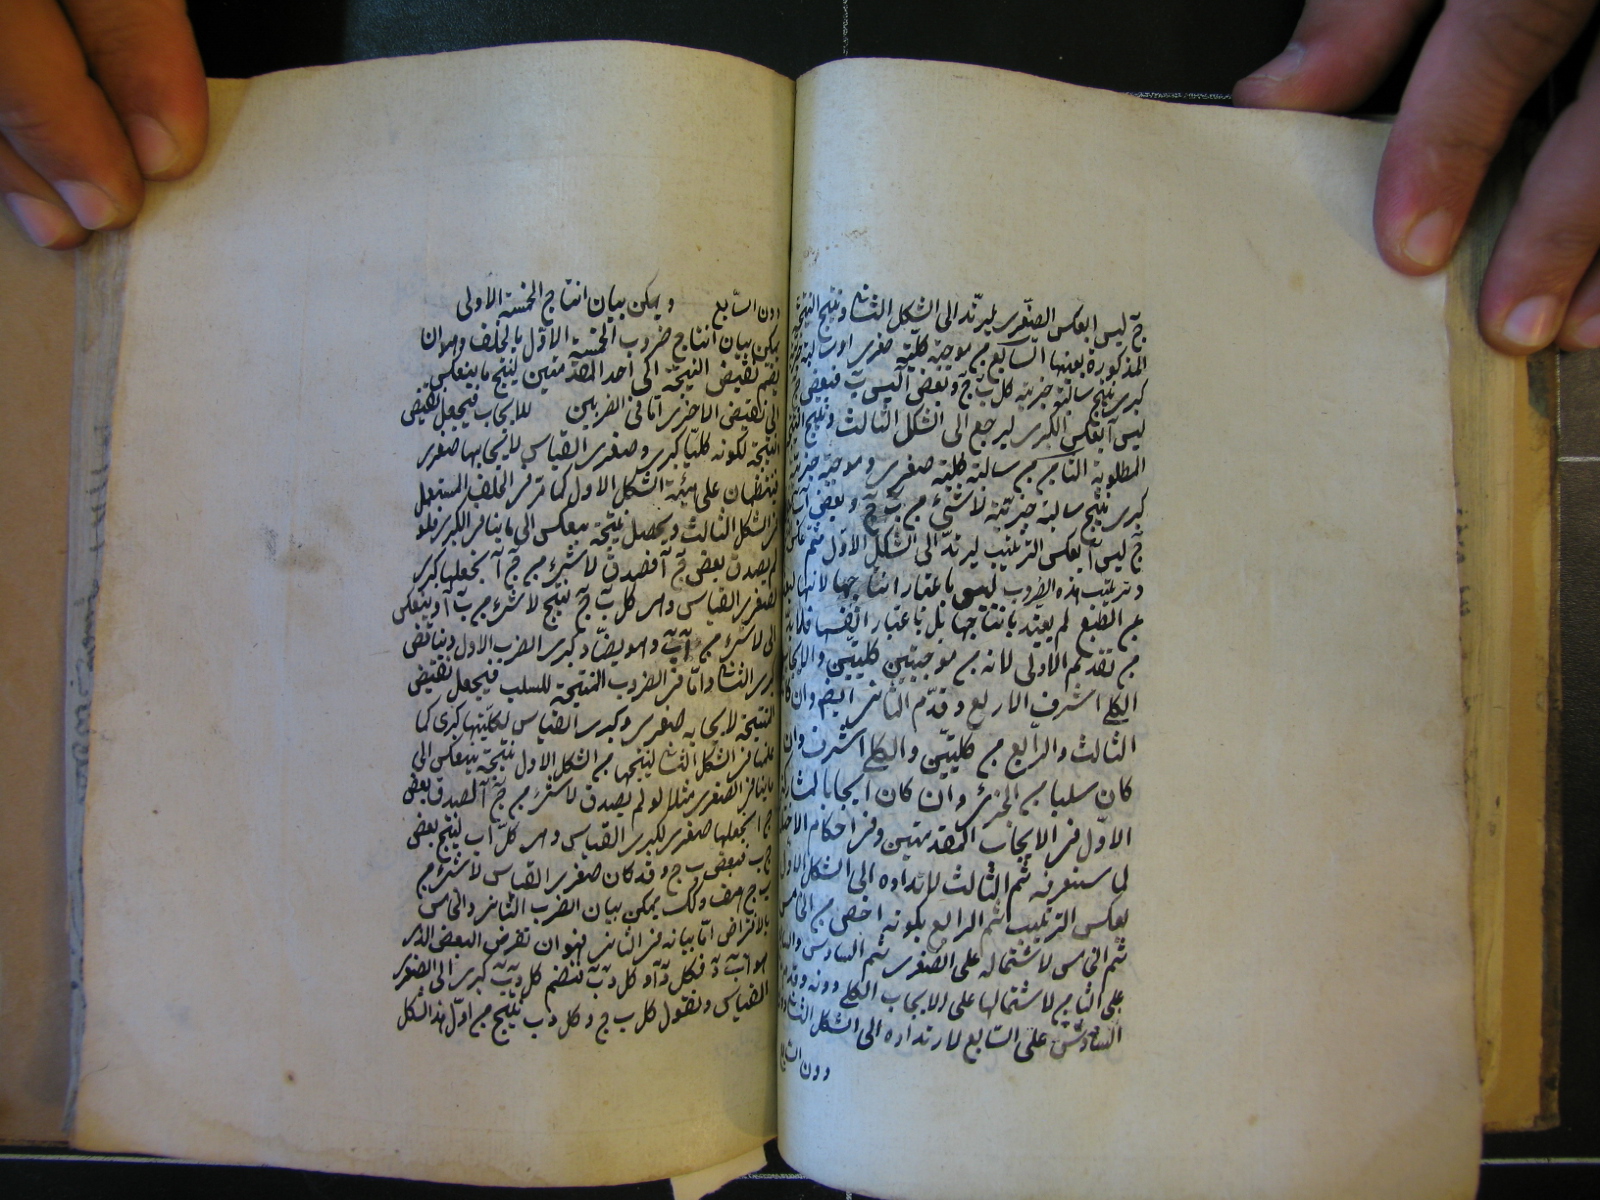 ج ليس ا بعكس الصغرى ليرتد الى الشكل الثانى وينتج النتيجة
المذكورة بعينها السابع من موجبة كلية صغرى وسالبة جزئية
كبرى ينتج سالبة جزئية كل ب ج وبعض آ ليس ب فبعض ج
ليس آ بعكس الكبرى ليرجع الى الشكل الثالث وينتج النتيجة
المطلوبة الثامن من سالبة كلية صغرى وموجبة جزئية
كبرى ينتج سالبة جزئية لا شىء من ب ج وبعض آ ب
ج ليس آ بعكس الترتيب ليرتد الى الشكل الاول ثم عكس
وترتيب هذه الضروب ليس باعتبار انتاجها لانها لبعدها
عن الطبع لم يعتد بانتاجها بل باعتبار انفسها فلا بد
من تقديم الاولى لانه من موجبتين كليتين والايجاب
الكلى اشرف الاربع وقدم الثانى ايضا وان كان
الثالث والرابع من كليتين والكلى اشرف وان
كان سلبا من الجزئى وان كان ايجابا لمشاركته
الاول فى الايجاب المقدمتين وفى احكام الاختلاط
لما ستعرفه ثم الثالث لارتداده الى الشكل الاول
بعكس الترتيب ثم الرابع لكونه اخص من الخامس
ثم الخامس لاشتماله على الصغرى ثم السادس والسابع
على الثامن لاشتمالها على الايجاب الكلى دونه وقدم
السادس على السابع لارتداده الى الشكل الثانى
دون السابع
دون السابع ويمكن بيان انتاج الخمسة الاولى
يمكن بيان انتاج ضروب الخمسة الاول بالخلف وهو ان
يضم نقيض النتيجة الى احد المقدمتين لينتج ما ينعكس
الى نقيض الاخرى اما فى الضربين للايجاب فيجعل نقيض
النتيجة لكونه كليا كبرى وصغرى القياس لايجابها صغرى
فينتظمان على هيئة الشكل الاول كما مر فى الخلف المستعمل
فى الشكل الثالث ويحصل نتيجة ينعكس الى ما ينافى الكبرى فلو
لم يصدق بعض ج آ فصدق لا شىء من ج آ نجعلها كبرى
لصغرى القياس وهى كل ب ج ينتج لا شىء من ب آ وينعكس
الى لا شىء من آ ب وهو يضاد كبرى الضرب الاول ويناقض
كبرى الثانى واما فى الضروب المنتجة للسلب فيجعل نقيض
النتيجة لايجابه صغرى وكبرى القياس لكليتها كبرى كما
علمنا فى الشكل الثانى لينتجها من الشكل الاول نتيجة ينعكس الى
ما ينافى الصغرى مثلا لو لم يصدق لا شىء من ج آ لصدق بعض
ج آ نجعلها صغرى لكبرى القياس وهى كل آ ب لينتج بعض
ج ب فبعض ب ج وقد كان صغرى القياس لا شىء من
ب ج هف وكذلك يمكن بيان الضرب الثانى والخامس
بالافتراض اما بيانه فى الثانى فهو ان نفرض البعض الذى
هو آ ب د فكل د آ وكل د ب فنضم كل د ب كبرى الى الصغرى
القياس ونقول كل ب ج وكل د ب ينتج من اول هذا الشكل